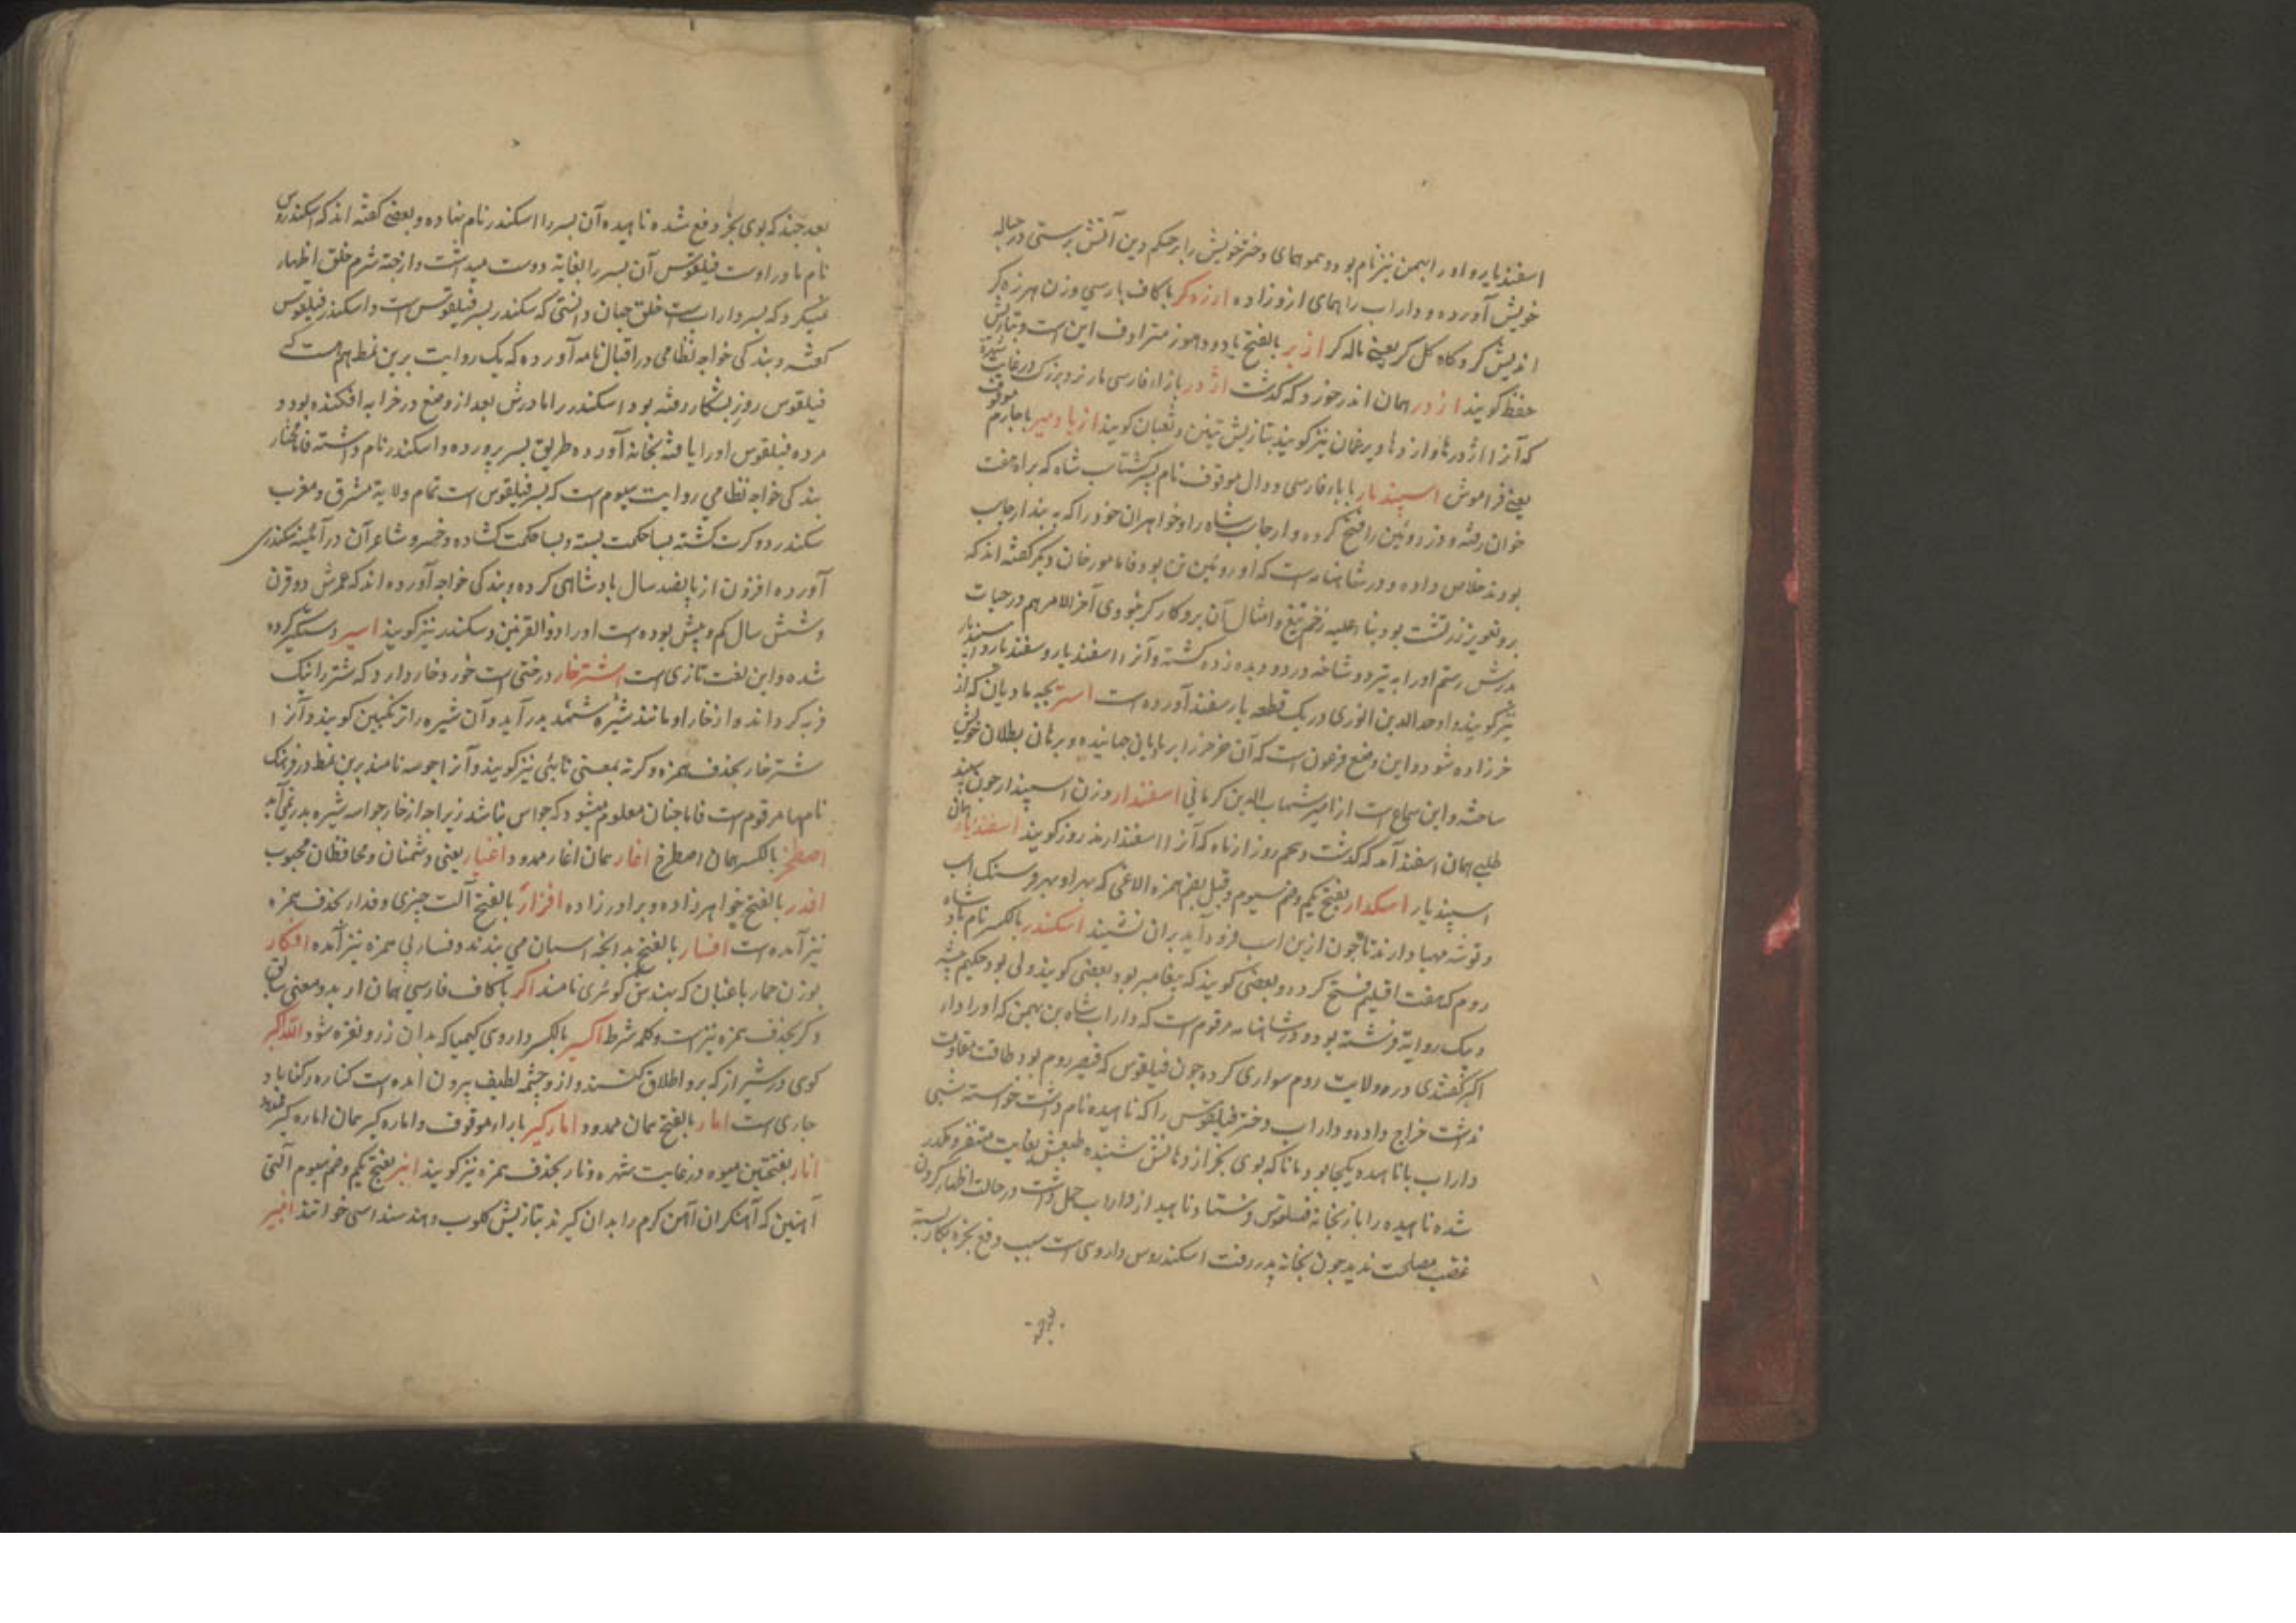 اسفندیار و او را بهمن نیز نام بود و هموهمای دختر خویش را بر حکم دین آتش پرستی در حباله
خویش آورده و داراب را همای ازو زاده ارزه کر با کاف پارسی وزن هرزه کر
اندیش کر و کاه کل کر یعنی ماله کر از بر بالفتح یاد و هموز مترادف این است و بتازیش
حفظ گویند از در همان اندر خورد که گذشت اژدر بازاء فارسی مار نر و بزرگ در غایت شهرة
که آنرا اژدرها و اژدها و برغمان نیز گویند بتازیش تنین و ثعبان گویند از یاد میر با جارم موقوف
یعنی فراموش اسپندیار با باء فارسی و دال موقوف نام پسر گشتاسب شاه که براه هفت
خوان رفته و دز روئین را فتح کرده و ارجاسب شاه را و خواهران خود را که به بند ارجاسب
بودند خلاص داده و در شاهنامه است که او روئین تن بود فاما مورخان دیگر گفته اند که
برو تعویز زرتشت بود بناء علیه زخم تیغ و امثال آن برو کارگر نبودی آخر الامر هم در حیات
پدرش رستم او را به تیر دو شاخه در دو دیده زده کشته و آنرا اسفندیار و سفندیار و سپندیار
نیز گویند و اوحد الدین انوری در یک قطعه یار سفند آورده است استر بچه مادیان که از
خر زاده شود و این وضع فرعون است که آن خر خر را بر مادیان جهانیده و برهان بطلان خویش
ساخته و این سماع است از امیر شهاب الدین کرمانی اسفندار وزن اسپندار چون سپند
طلبی همان اسفند آمد که گذشت و پنجم روز از ماه که آنرا اسفندارمذ روز گویند اسفندیار همان
اسپندیار اسکدار بفتح یکم و ضم سیوم و قیل بضم همزه الاغی که بهر او بهر فرسنگ اسب
و توشه مهیا دارند تا چون ازین اسب فرود آید بر آن نشیند اسکندر بالکسر نام پادشاه
روم که هفت اقلیم فتح کرده و بعضی گویند که پیغامبر بود و بعضی گویند ولی بود حکیم پیشه
و بیک روایة فرشته بود و در شاهنامه مرقوم است که داراب شاه بن بهمن که او را دار
اکبر گفتندی در ولایت روم سواری کرده چون فیلقوس که قیصر روم بود طاقت مقاومت
نداشت خراج داده و داراب دختر فیلقوس را که ناهیده نام داشت خواسته شبی
داراب با ناهیده یکجا بود مانا که بوی بخر از دهانش شنیده طبعش بغایت متنفر و مکدر
شده ناهیده را باز بخانه فیلقوس فرستاد و ناهید از داراب حمل داشت در حالت اظهار کردن
غضب مصلحت ندید چون بخانه پدر رفت اسکندروس داروی است سبب دفع بخر بکار بسته
بعد چند که بوی بخر دفع شده ناهیده آن پسر را اسکندر نام نهاده و بعضی گفته اند که اسکندروس
نام مادر اوست فیلقوس آن پسر را بغایة دوست میداشت و از جهة شرم خلق اظهار
نمیکرد که پسر داراب است خلق جهان دانستی که سکندر پسر فیلقوس است و اسکندر فیلقوس
گفته و بندگی خواجه نظامی در اقبال نامه آورده که یک روایت برین نمط هم هست که
فیلقوس روزی بشکار رفته بود اسکندر را مادرش بعد از وضع در خرابه افکنده بود و
مرده فیلقوس او را یافته بخانه آورده طریق پسر پرورده و اسکندر نام داشته فاما مختار
بندگی خواجه نظامی روایت سیوم است که پسر فیلقوس است تمام ولایة مشرق و مغرب
سکندر دو کرت گشته بسا حکمت بسته و بسا حکمت گشاده و خسرو شاعر آن در آئینه سکندری
آورده افزون از پانصد سال پادشاهی کرده و بندگی خواجه آورده اند که عمرش دو قرن
و شش سال کم و بیش بوده است او را ذوالقرنین و سکندر نیز گویند اسیر دستگیر کرده
شده و این لغت تازی است اشترخار درختی است خورد خار دارد که شتر را نیک
فربه گرداند و از خار او مانند شیره شهد بدر آید و آن شیره را ترنگبین گویند و آنرا
شترخار بحذف همزه و کرته بمعنی تابئی نیز گویند و آنرا جوسه نامند برین نمط در فرهنگ
نامها مرقوم است فاما چنان معلوم میشود که جواس نباشد زیرا چه از خار جواسه شیره بدر نمی آید
اصطخر بالکسر همان اصطرخ اغار همان اغار ممدود اغیار یعنی دشمنان و محافظان محبوب
افدر بالفتح خواهرزاده و برادرزاده افزار بالفتح آلت چیزی و فزار بحذف همزه
نیز آمده است افسار بالفتح بدانچه اسبان می بندند و فسار بی همزه نیز آمده افکار
بوزن حمار باغبان که بهندش کونری نامند اکر با کاف فارسی همان ار بدو معنی سابق
و کر بحذف همزه نیز است و کلمه شرط اکسیر بالکسر داروی کیمیا که بدان زر و نقره شود الله اکبر
کوی در شیراز که برو اطلاق کنند و از و چشمه لطیف بیرون آمده است کناره رکناباد
جاری است امار بالفتح همان ممدود امارکیر با راء موقوف و اماره کیر همان اماره کیر ممدود
انار بفتحتین میوه در غایت شهره و نار بحذف همزه نیز گویند انبر بفتح یکم و ضم سیوم آلتی
آهنین که آهنگران آهن گرم را بدان گیرند بتازیش کلوب و هند سنداسی خوانند انبیر